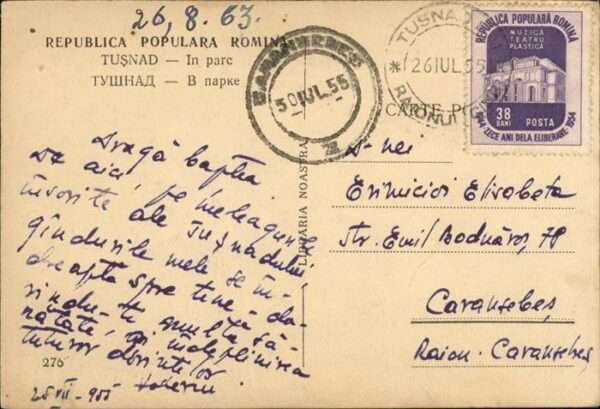 26,8.63.
REPUBLICA POPULARA ROMINA
TUŞNAD — In parc
ТУШНАД — В парке
TUŞNAD
* 26IUL.55
RAIONUL
CARANSEBEȘ
30IUL.55
2
REPUBLICA POPULARA ROMINA
MUZICĂ
TEATRU
PLASTICĂ
38
BANI
POSTA
1944 ZECE ANI DELA ELIBERARE 1954
CARTE
LIBRARIA NOASTRA
Dragă
De aici, pe meleagurile
însorite ale Tușnadului,
gîndurile mele se în-
dreapta spre tine - do-
rindu-ti multă să-
nătate, și indeplinirea
tuturor dorintelor
276
25 VII - 955
D-nei
Erimicioi Elisabeta
Str. Emil Bodnăraș, 78
Caransebeș
Raion. Caransebeș